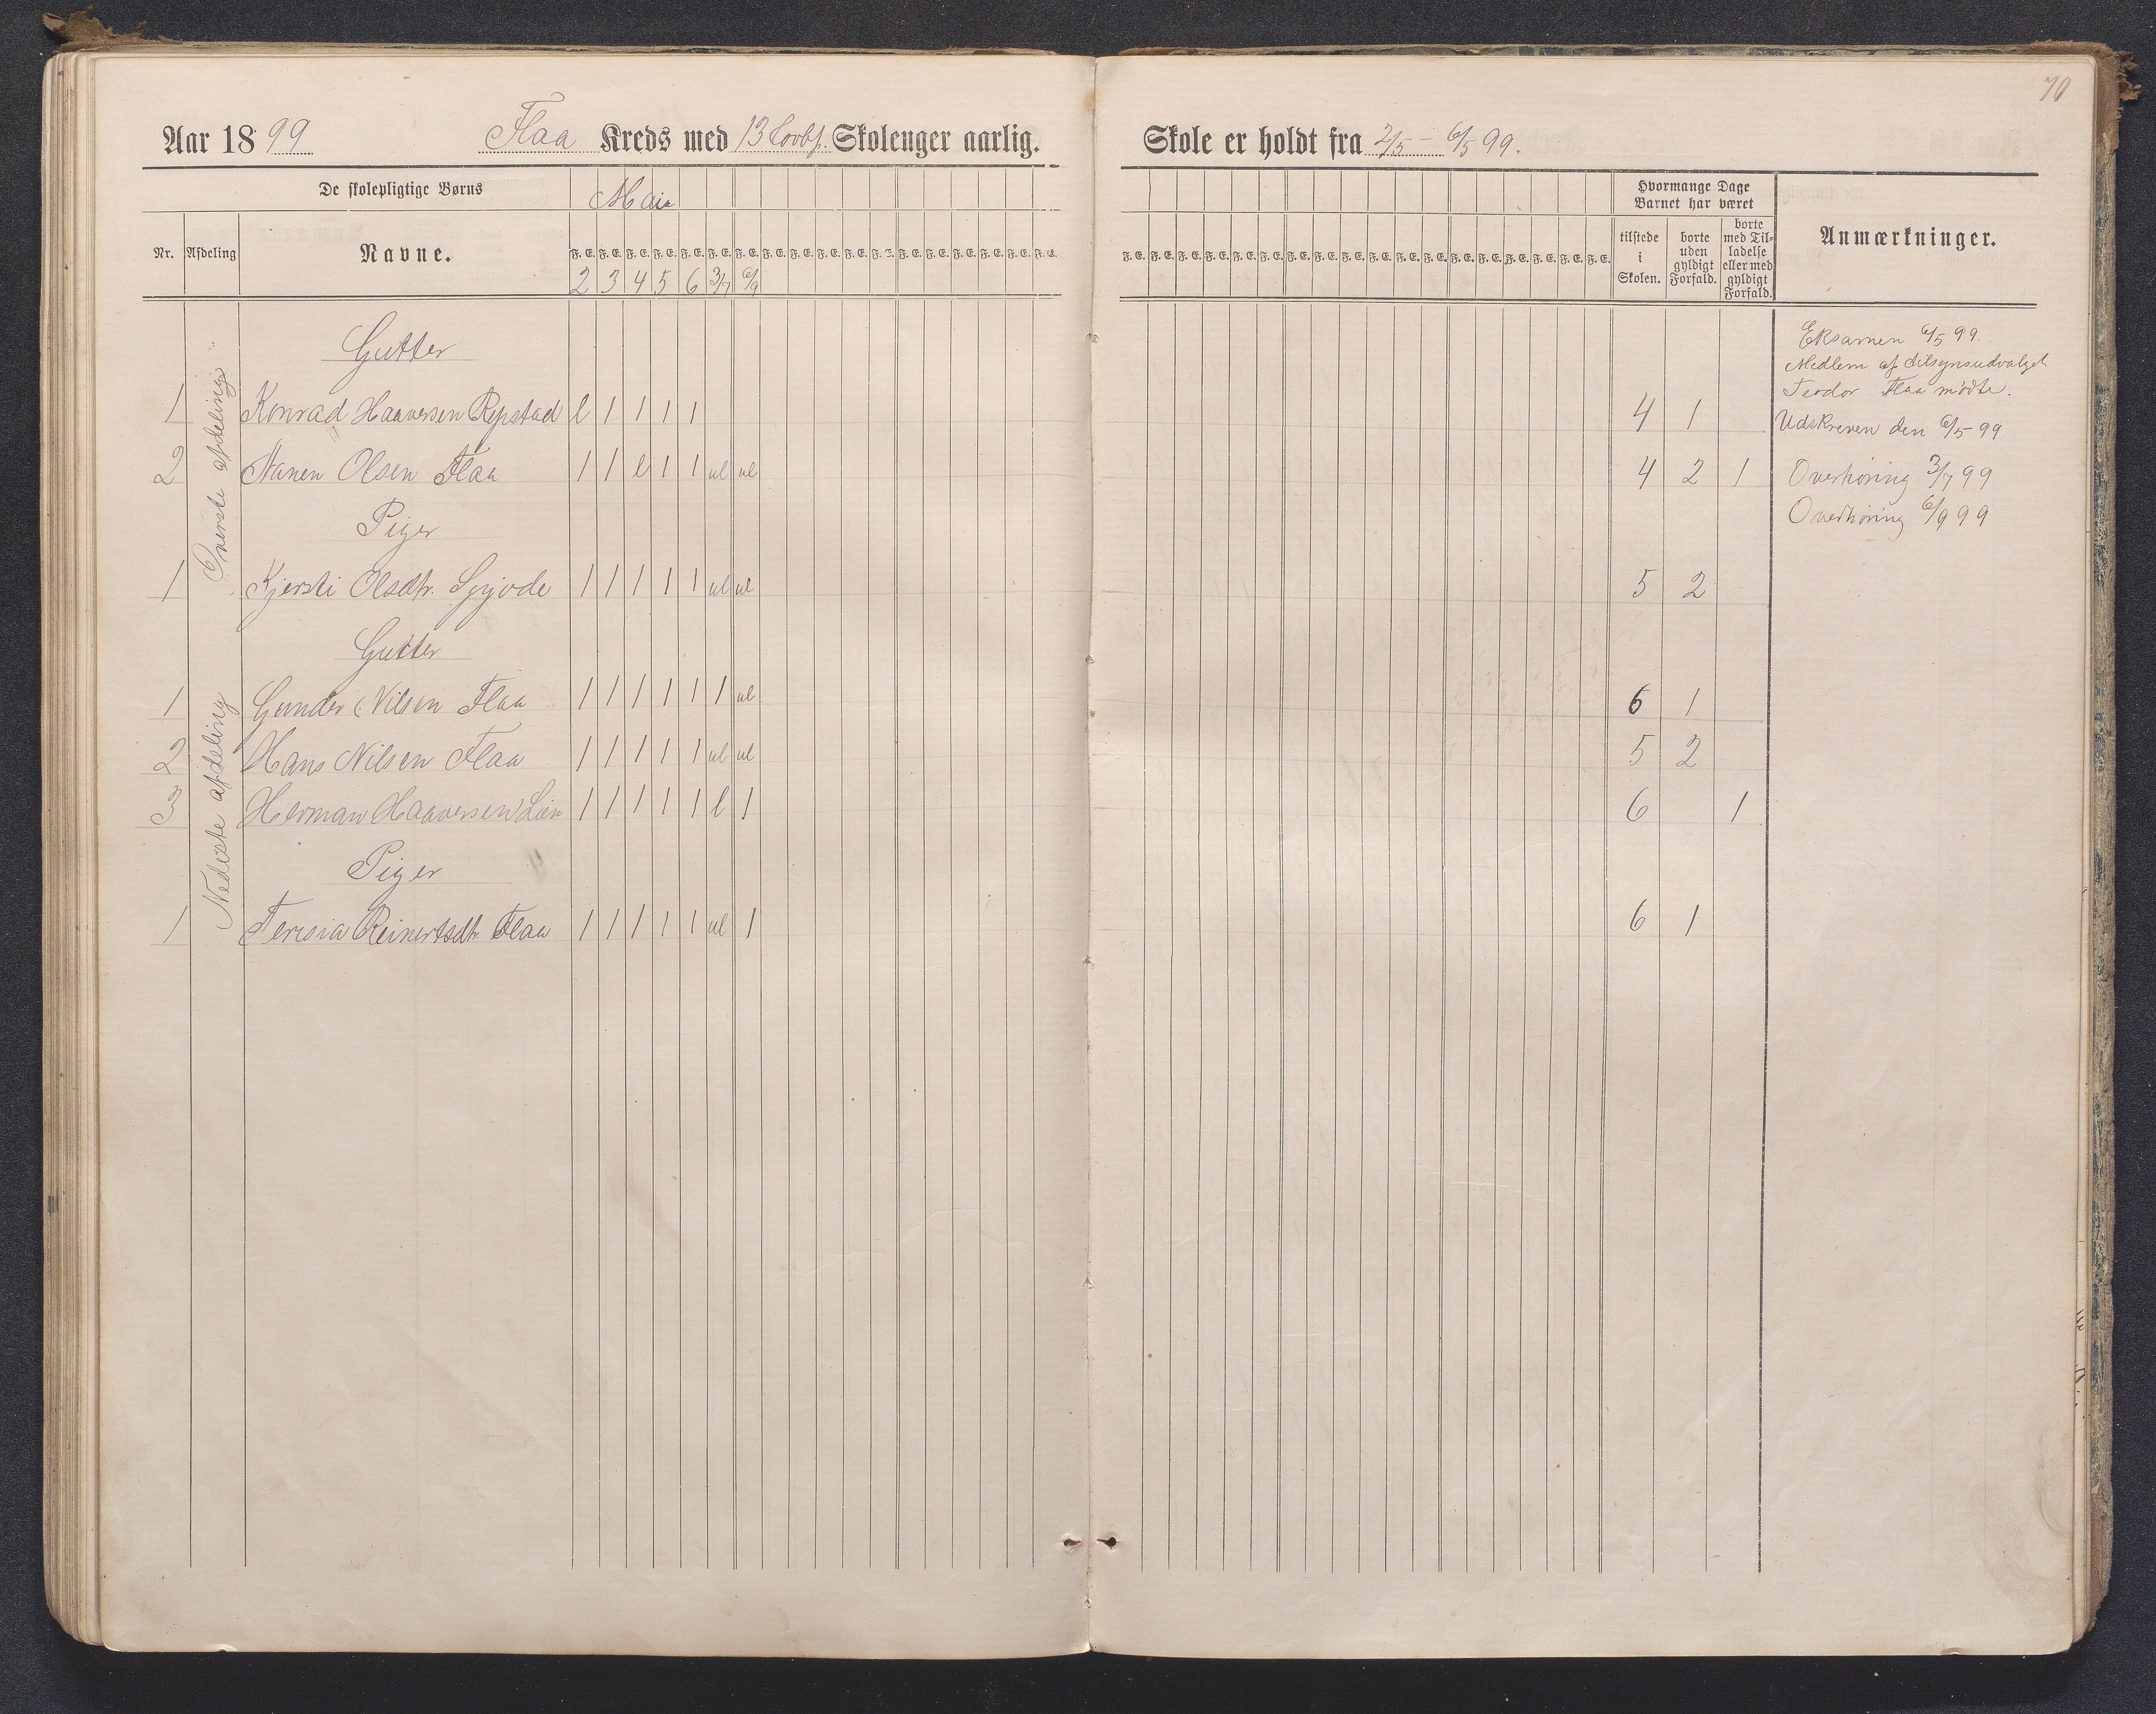 70
Aar 1899 Flaa Kreds med 13 Lovbf. Skolenger aarlig.
De skolepligtige Børns Mai
Nr. Afdeling Navne. F. E. F. E. F. E. F. E. F. E. F. E. F. E. F. E. F. E. F. E. F. E. F. E. F. E. F. E. F. E. F. E. F. E. F. E.
2 3 4 5 6 3/7 6/9
Øverste afdeling
Gutter
1 Konrad Haaversen Repstad l 1 1 1 1
2 Stanen Olsen Flaa 1 1 l 1 1 ul ul
Piger
1 Kjersti Olsdtr. 1 1 1 1 1 ul ul
Nedeste afdeling
Gutter
1 Gunder Nilsen Flaa 1 1 1 1 1 1 ul
2 Hans Nilsen Flaa 1 1 1 1 1 ul ul
3 Herman Haaversen Lien 1 1 1 1 1 l 1
Piger
1 Teresia Reinertsdtr. Flaa 1 1 1 1 1 ul 1
Skole er holdt fra 2/5 – 6/5 99.
Hvormange Dage
Barnet har været
F. E. F. E. F. E. F. E. F. E. F. E. F. E. F. E. F. E. F. E. F. E. F. E. F. E. F. E. F. E. F. E. F. E. F. E.
tilstede
i
Skolen.
borte
uden
gyldigt
Forfald.
borte
med Til-
ladelse
eller med
gyldigt
Forfald.
Anmærkninger.
Eksamen 6/5 99.
Medlem af tilsynsudvalget
Teodor Flaa mødte.
4 1 Udskreven den 6/5 99
4 2 1 Overhøring 3/7 99
Overhøring 6/9 99
5 2
6 1
5 2
6 1
6 1